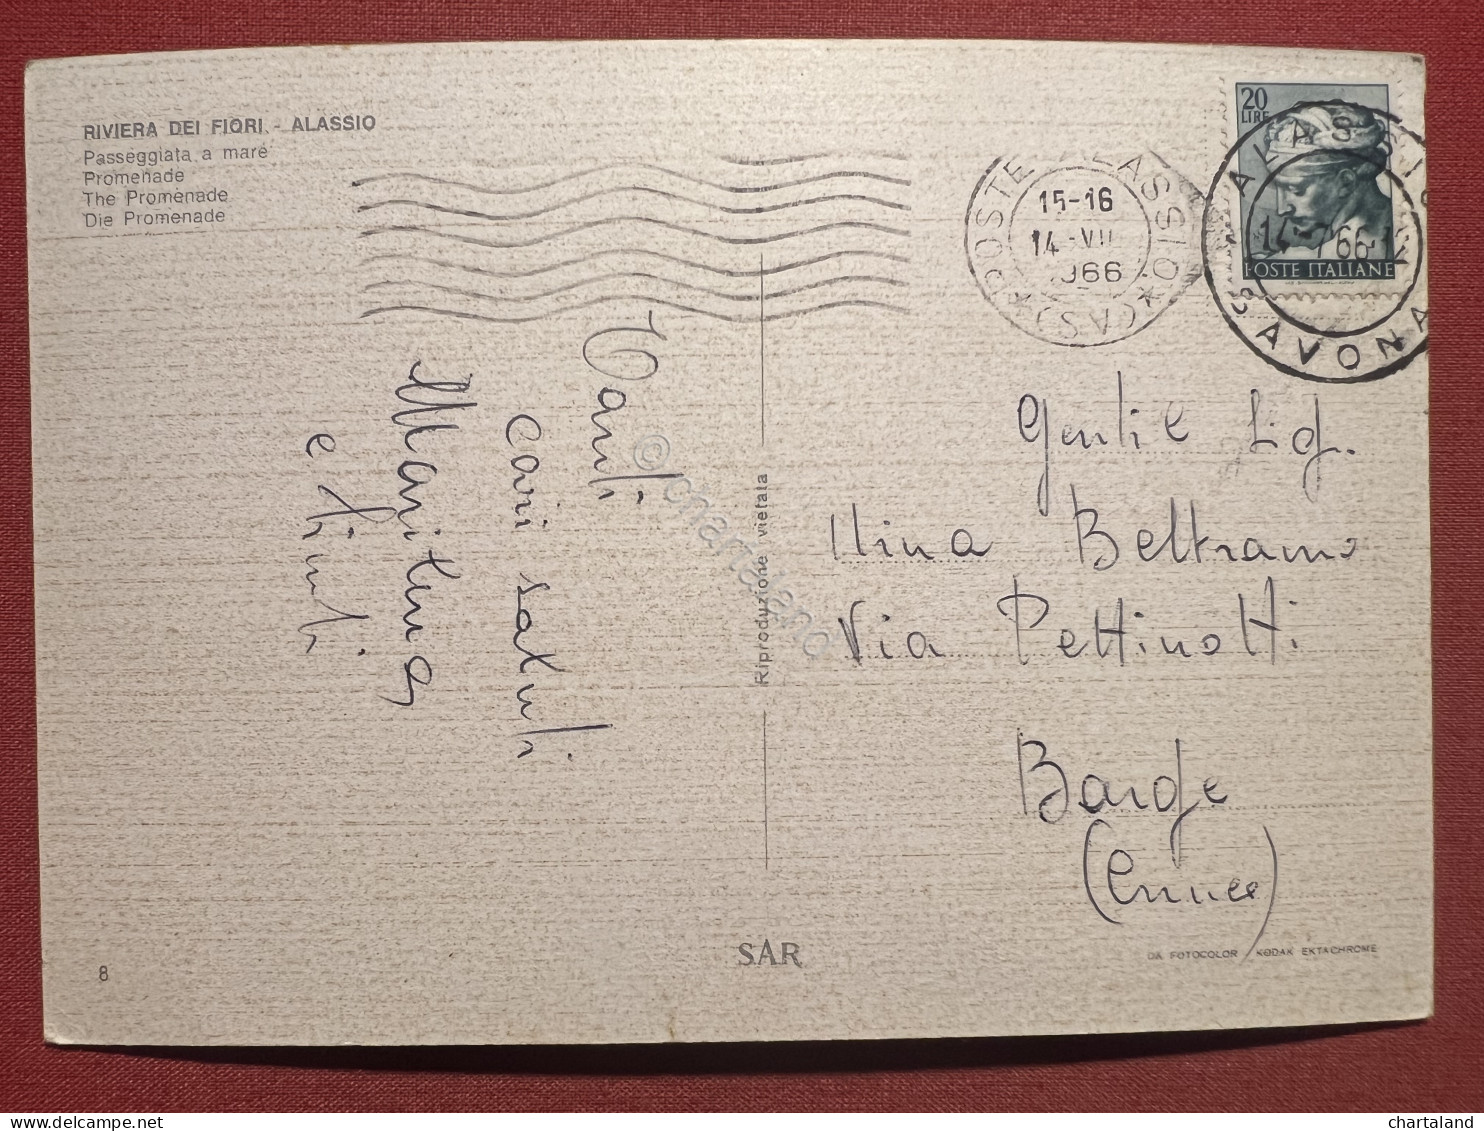 RIVIERA DEI FIORI - ALASSIO
Passeggiata a mare
Promenade
The Promenade
Die Promenade
POSTE ALASSIO
15-16
14-VII
1966
★(SV)★
20
LIRE
POSTE ITALIANE
ALASSIO
14-7 66-12
SAVONA
Tanti
cari saluti
e
Gentil Sig.
Nina Beltramo
Via Pettinotti
Barge
(Cuneo)
Riproduzione vietata
© chartaland
SAR
DA FOTOCOLOR KODAK EKTACHROME
8
chartaland